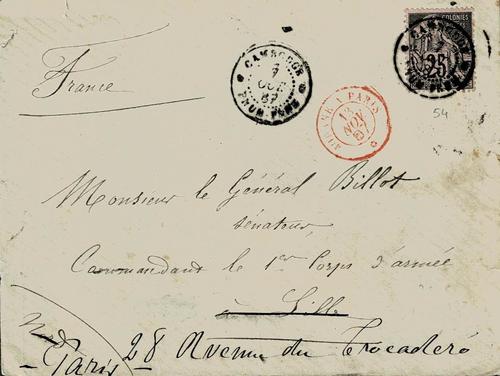 France
CAMBODGE
7
OCT
87
PNOM-PENH
COLONIES
25
CAMBODGE
PNOM-PENH
A PARIS
13
NOV
87
54
Monsieur le Général Billot
sénateur,
Commandant le 1er Corps d'armée
à Lille
28 Avenue du Trocadéro
Paris